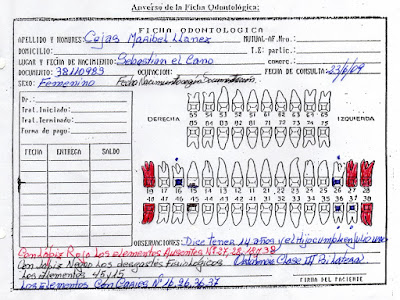 Anverso de la Ficha Odontológica:
FICHA ODONTOLOGICA
APELLIDO Y NOMBRES: Cejas Maribel Llanez MUTUAL-AF.Nro.:
DOMICILIO: T.E: partic.:
LUGAR Y FECHA DE NACIMIENTO: Sebastian el Cano comerc.
DOCUMENTO: 38110989 OCUPACION: FECHA DE CONSULTA: 23/6/09
SEXO: Femenino Fecha Nacimiento según Documentación
Dr.:
Trat.Iniciado:
Trat.Terminado:
Forma de pago:
DERECHA IZQUIERDA
55 54 53 52 51 61 62 63 64 65
FECHA ENTREGA SALDO
18 17 16 15 14 13 12 11 21 22 23 24 25 26 27 28
48 47 46 45 44 43 42 41 31 32 33 34 35 36 37 38
OBSERVACIONES: Dice tener 14 años y el hijo cumplió en julio uno
Con Lápiz Rojo Los elementos Ausentes Nº 27, 28, 18 y 38
Con Lapiz Negro Los desgastes Fisiológicos Clase III Bilateral
Los elementos 45 y 15
Los elementos Con Caries Nº 16, 26, 36, 37
FIRMA DEL PACIENTE